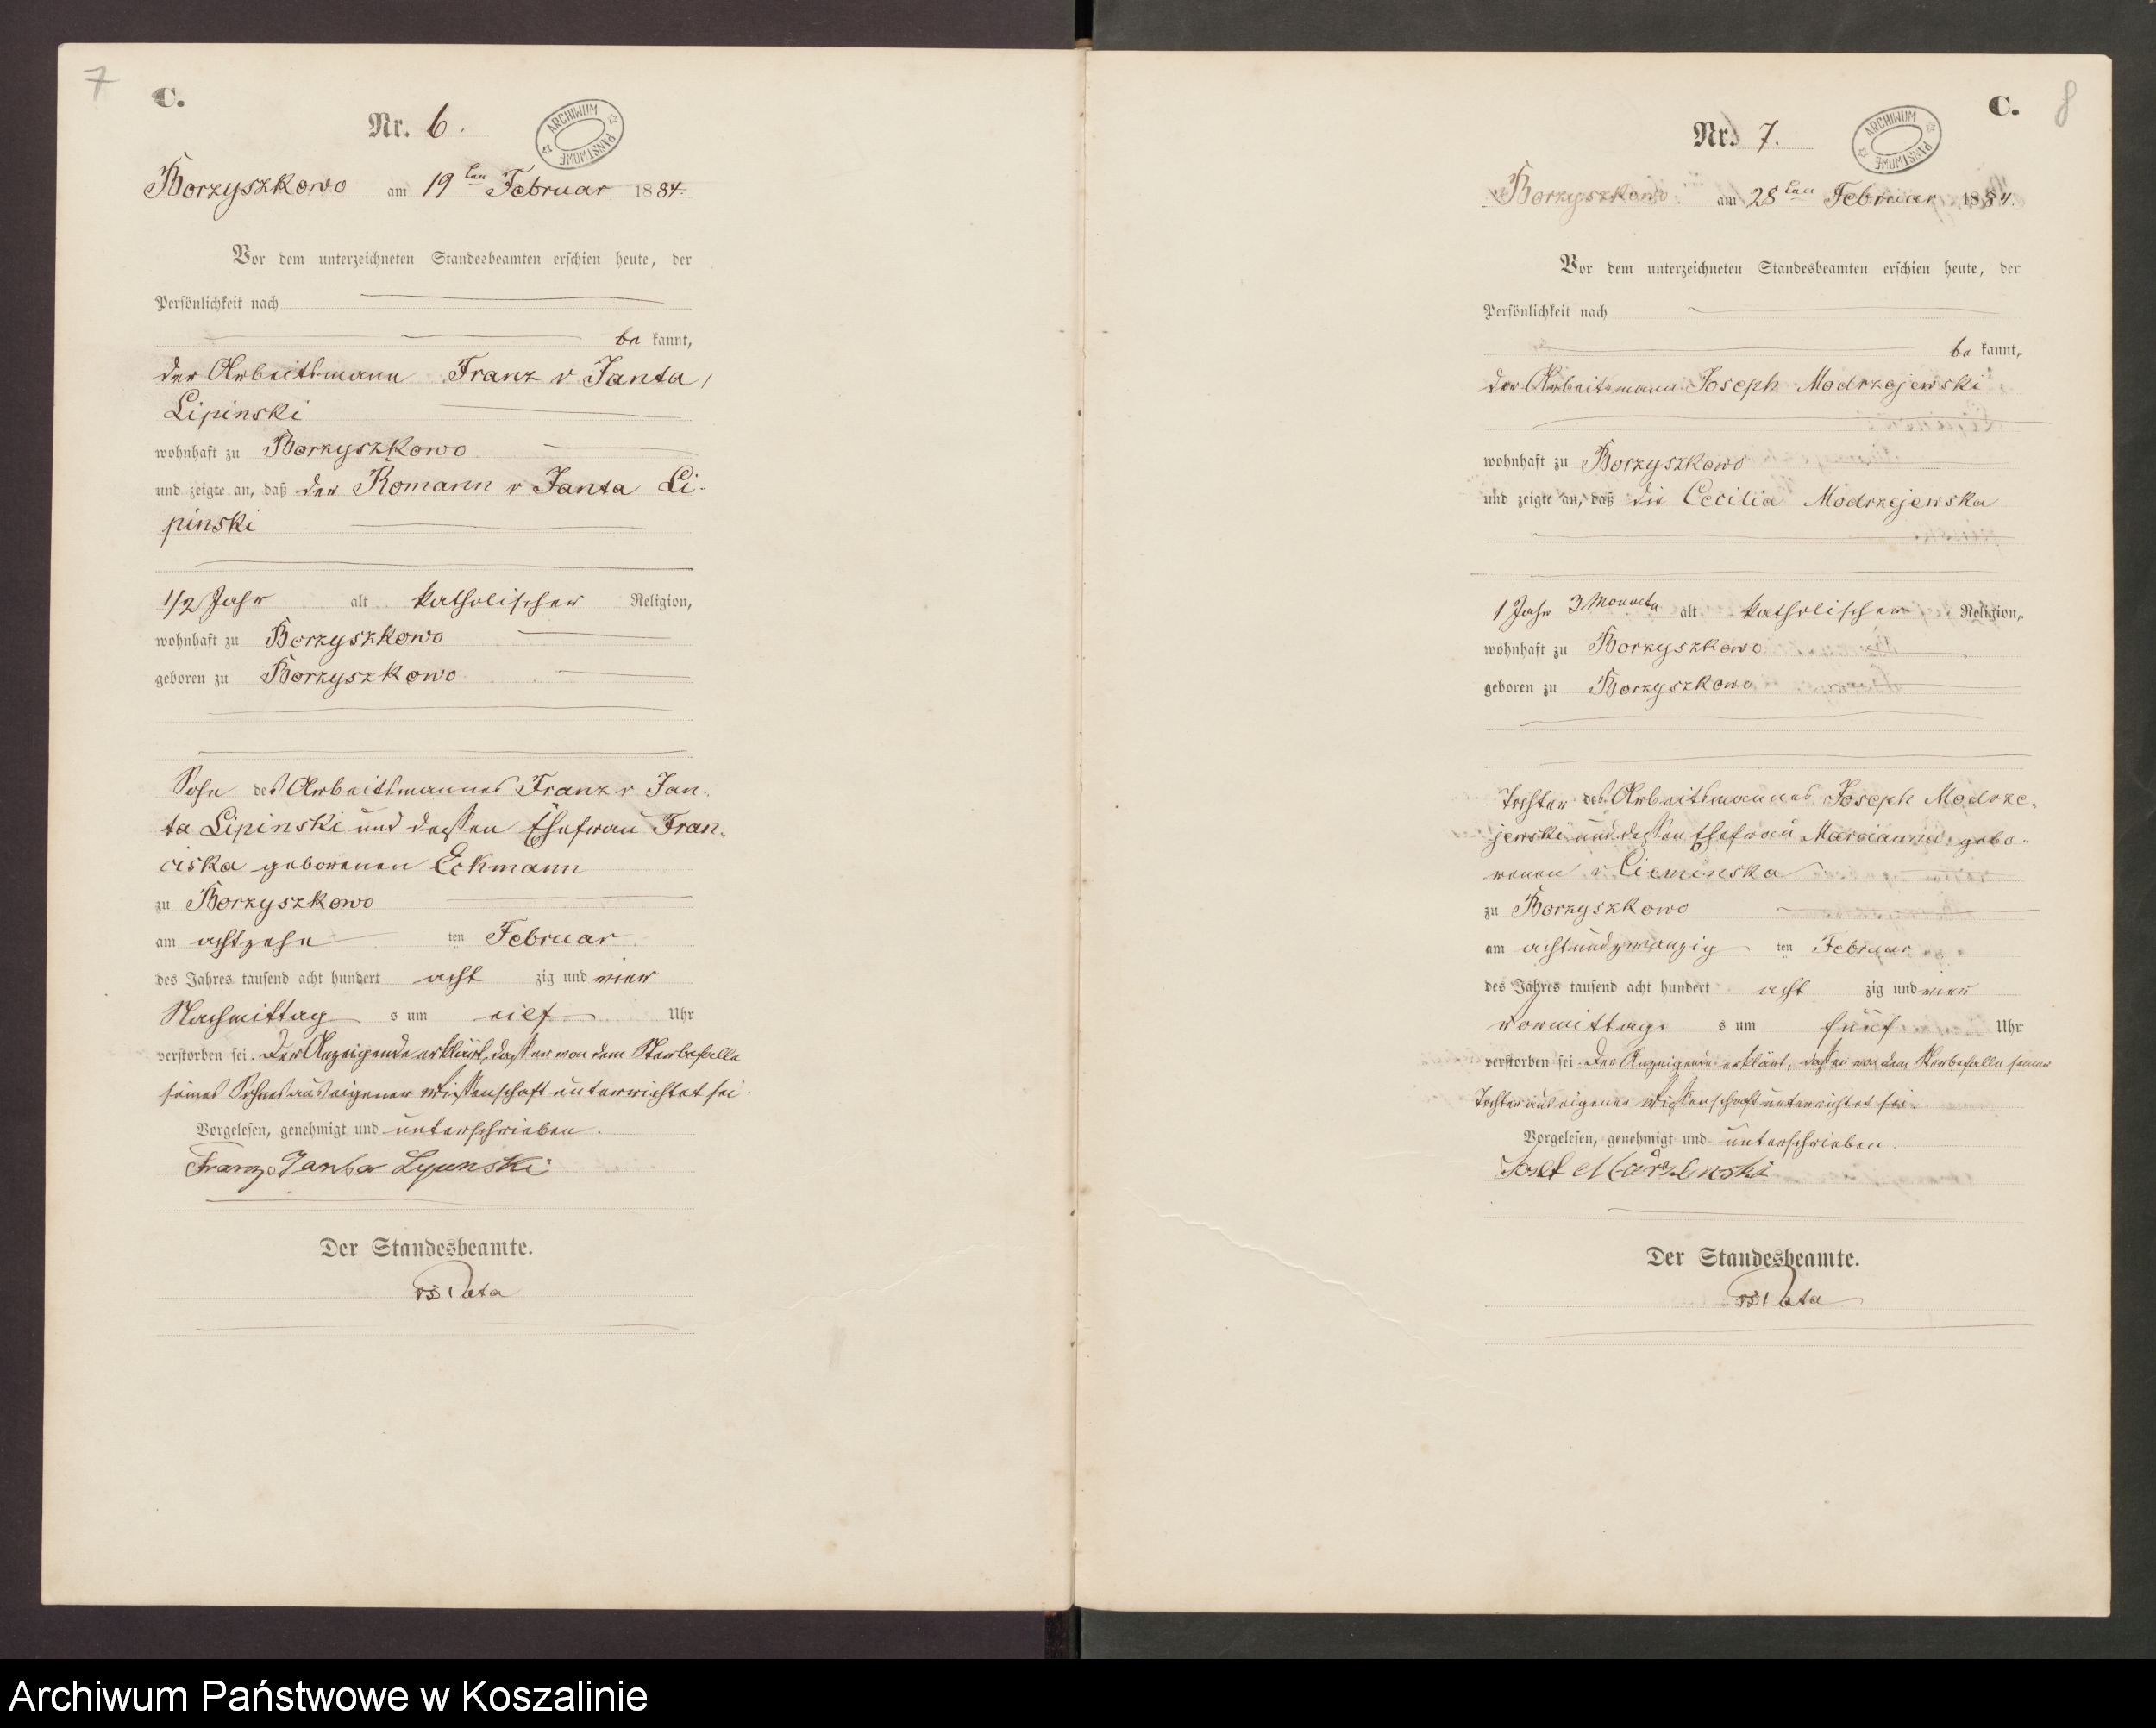 7
C.
Nr. 6.
ARCHIWUM PAŃSTWOWE
Borzyszkowo am 19ten Februar 1884.
Vor dem unterzeichneten Standesbeamten erschien heute, der
Persönlichkeit nach
be kannt,
der Arbeitsmann Franz v Janta
Lipinski
wohnhaft zu Borzyszkowo
und zeigte an, daß der Romann v Janta Li-
pinski
1/2 Jahr alt katholischer Religion,
wohnhaft zu Borzyszkowo
geboren zu Borzyszkowo
Sohn des Arbeitsmannes Franz v Jan-
ta Lipinski und dessen Ehefrau Fran-
ciska geborenen Eckmann
zu Borzyszkowo
am achtzehn ten Februar
des Jahres tausend acht hundert acht zig und vier
Nachmittag s um eilf Uhr
verstorben sei. Der Anzeigende erklärt, dass er von dem Sterbefalle
seines Sohnes aus eigener Wissenschaft unterrichtet sei.
Vorgelesen, genehmigt und unterschrieben.
Franz Janta Lypinski
Der Standesbeamte.
C.
8
Nr. 7.
ARCHIWUM PAŃSTWOWE
Borzyszkowo am 28ten Februar 1884.
Vor dem unterzeichneten Standesbeamten erschien heute, der
Persönlichkeit nach
be kannt,
der Arbeitsmann Joseph Modrzejewski
wohnhaft zu Borzyszkowo
und zeigte an, daß die Cecilia Modrzejewska
1 Jahr 3 Monate alt katholischer Religion,
wohnhaft zu Borzyszkowo
geboren zu Borzyszkowo
Tochter des Arbeitsmannes Joseph Modrze-
jewski und dessen Ehefrau Marianna gebo-
renen v Cieminska
zu Borzyszkowo
am achtundzwanzig ten Februar
des Jahres tausend acht hundert acht zig und vier
Vormittag s um fünf Uhr
verstorben sei Der Anzeigende erklärt, dass er von dem Sterbefalle seiner
Tochter aus eigener Wissenschaft unterrichtet sei.
Vorgelesen, genehmigt und unterschrieben.
Der Standesbeamte.
Archiwum Państwowe w Koszalinie